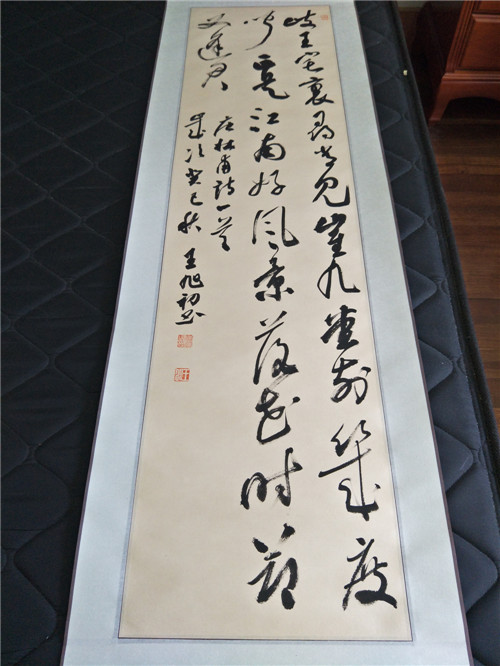 岐王宅裏尋常見崔九堂前幾度
聞正是江南好风景落花时節
又逢君
唐杜甫詩一首
歲次癸巳秋 王旭